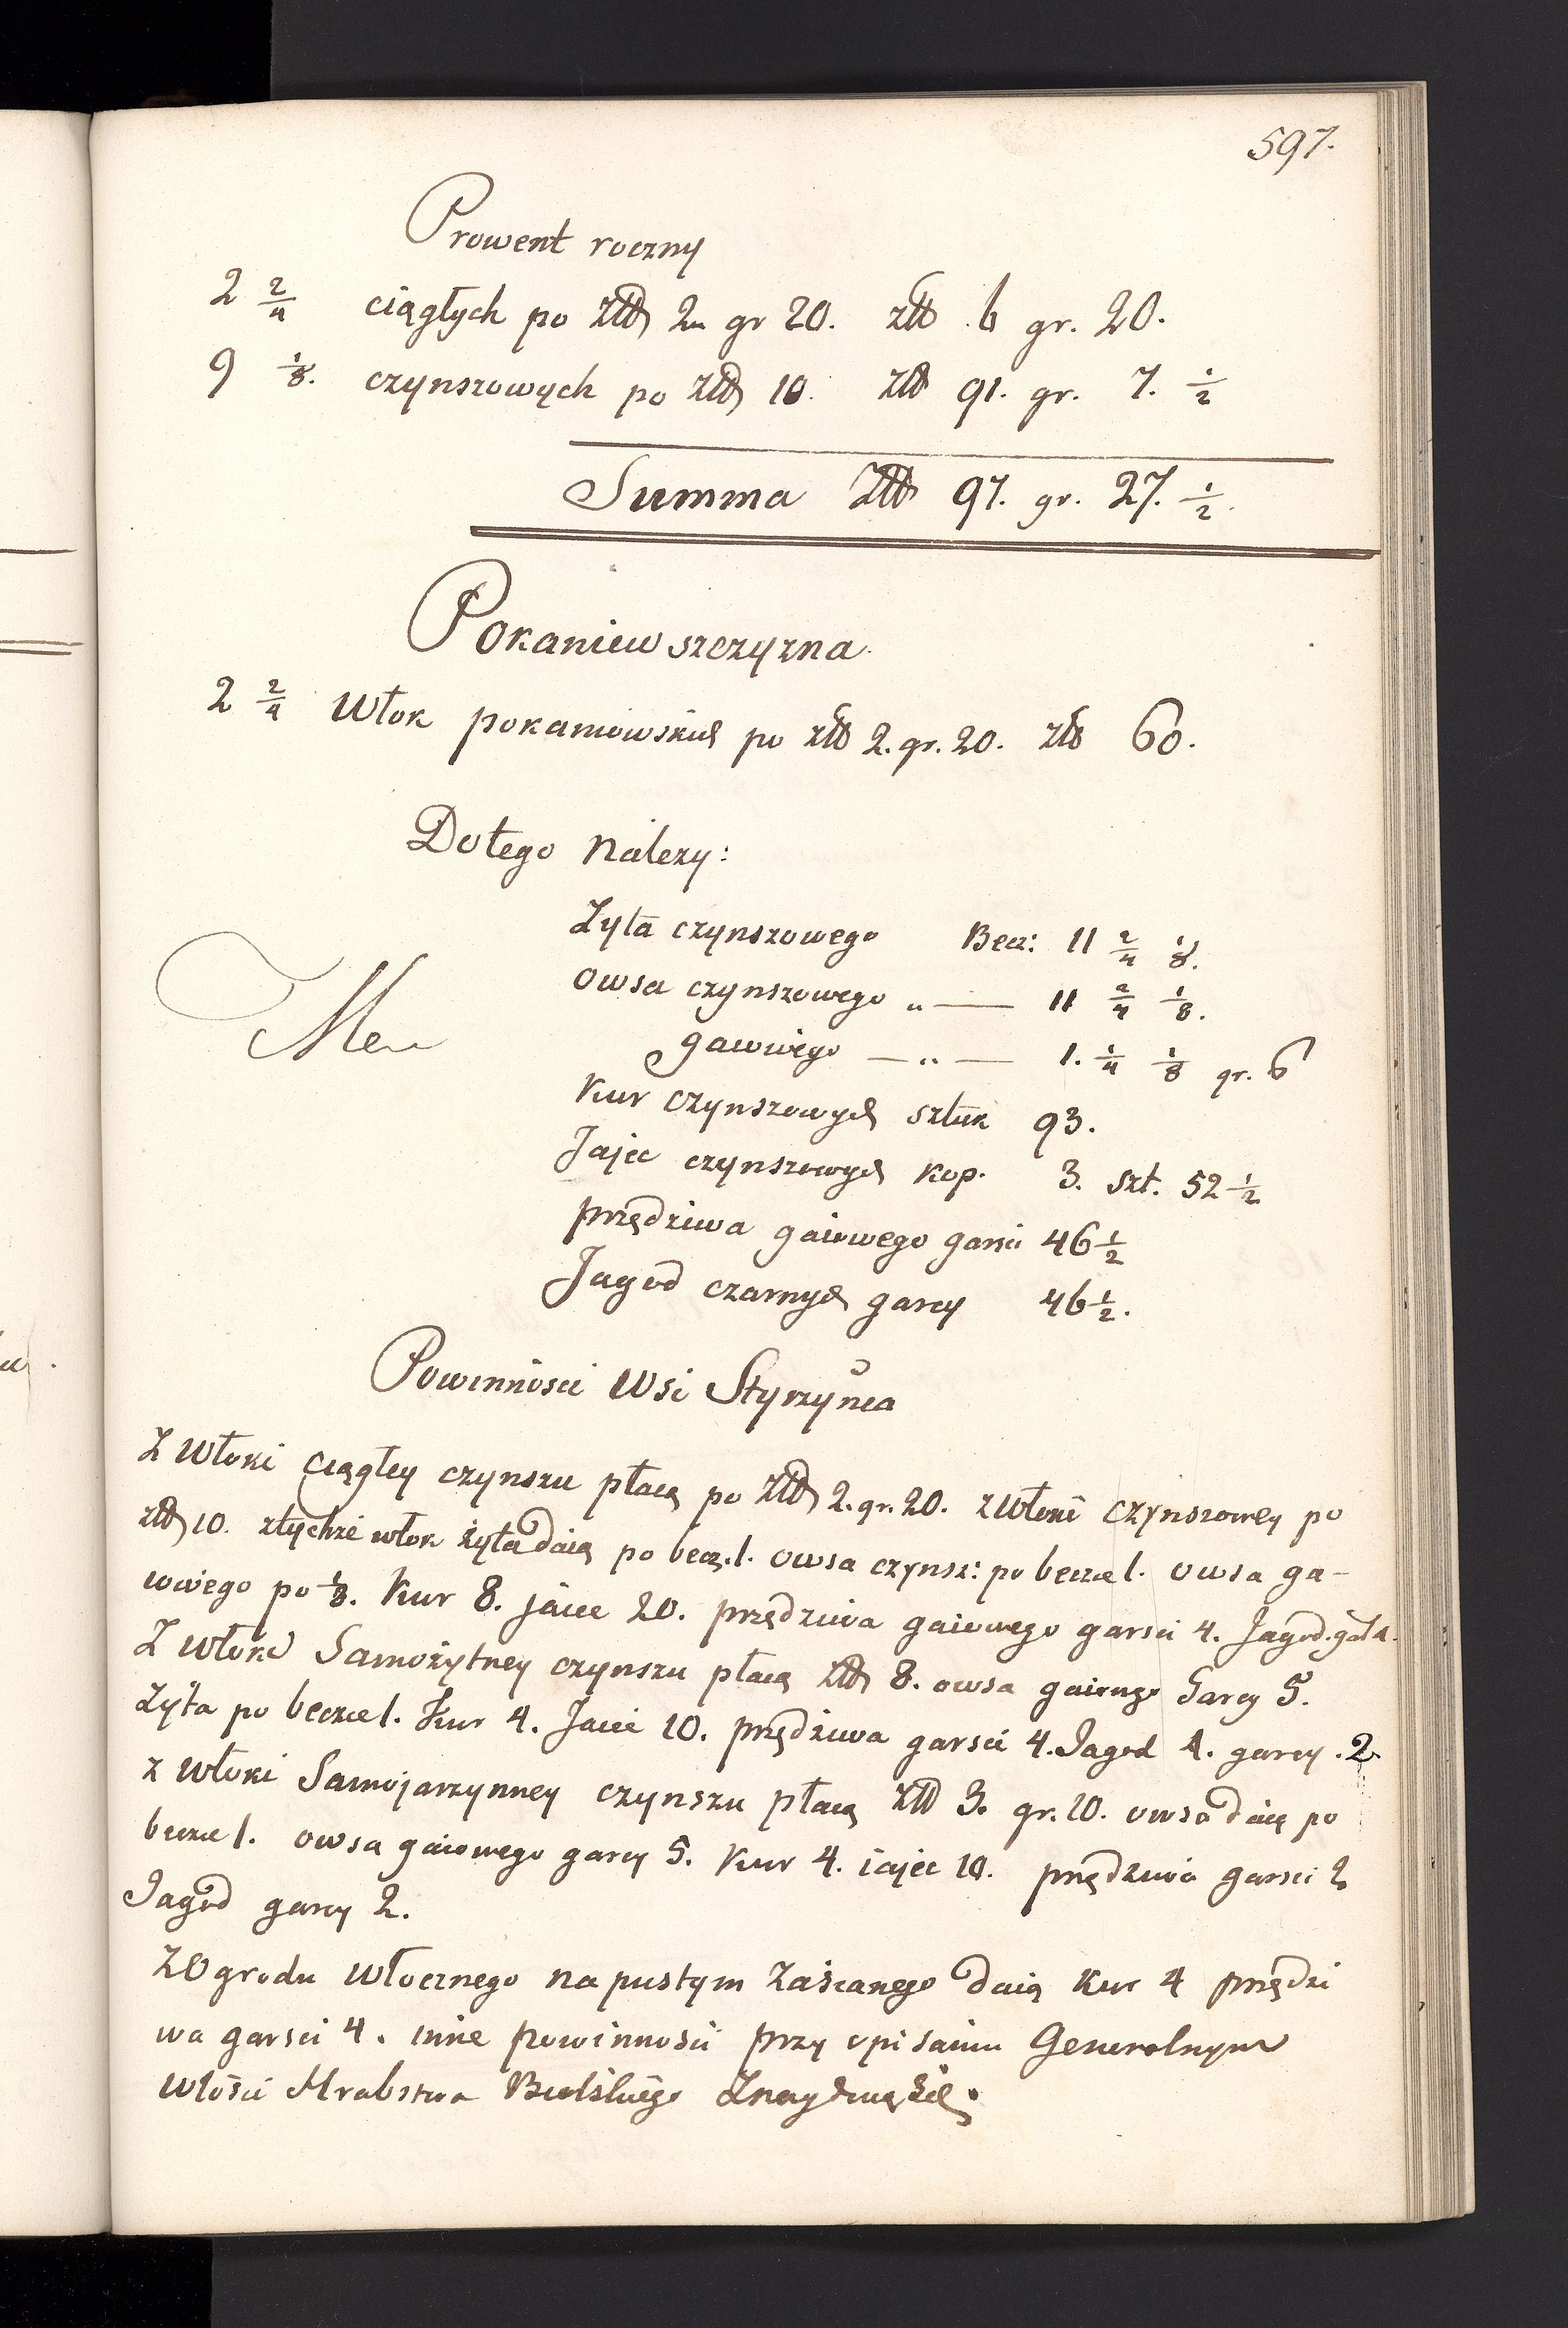 597.
Prowent roczny
2 2/4 ciągłych po złł 2 gr 20. złł 6 gr. 20.
9 1/8. czynszowych po złł 10. złł 91. gr. 7. 1/2
Summa Złł 97. gr. 27. 1/2.
Pokaniewszczyzna.
2 2/4 Włok pokaniowskich po złł 2. gr. 20. złł 60.
Dotego Nalezy:
Zyta czynszowego Becz: 11 2/4 1/8.
owsa czynszowego „ — 11 2/4 1/8.
gaiowego — „ — 1. 1/4 1/8 gr. 6
Kur czynszowych sztuk 93.
Jajec czynszowych kop. 3. szt. 52 1/2
przędziwa gaiowego garsci 46 1/2
Jagod czarnych garcy 46 1/2.
Powinnosci Wsi Styrzynca
Z Włoki ciągłey czynszu płacą po Złł 2. gr. 20. z Włoki czynszowey po
złł 10. ztychże włok żyta daią po becz. 1. owsa czynsz: po beczce 1. owsa ga-
iowego po 1/8. Kur 8. jaiec 20. przędziwa gaiowego garsci 4. Jagod. gar 4.
Z Włoki Samożytney czynszu płacą złł 8. owsa gaiowego Garcy 5.
Zyta po beczce 1. Kur 4. Jaiec 10. przędziwa garsci 4. Jagod 4. garcy . 2.
z Włoki Samojarzynney czynszu płacą złł 3. gr. 10. owsa daią po
beczce 1. owsa gaiowego garcy 5. Kur 4. iajec 10. przędziwa garsci 2
Jagod garcy 2.
Z Ogrodu włocznego na pustym Zasianego daią Kur 4 przędzi
wa garsci 4. inne powinnosci przy opisaniu Generalnym
włosci Hrabstwa Bielskiego Znayduią się.